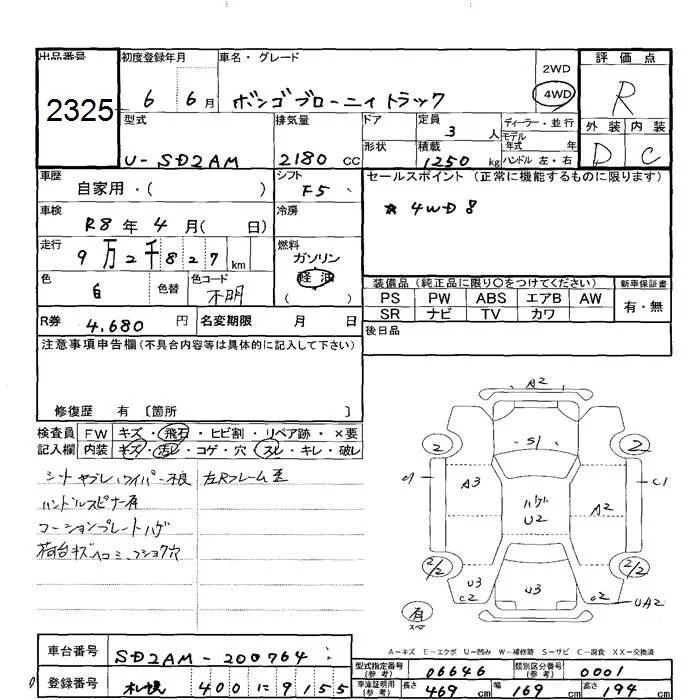 出品番号 2325
初度登録年月 6 6月
車名・グレード ボンゴブローニィトラック
2WD 4WD
評価点 R
外装 D 内装 C
型式 U-SD2AM
排気量 2180 CC
ドア 形状
定員 3 人
積載 1250 kg
ディーラー・並行
モデル年式 年
ハンドル 左・右
車歴 自家用・( )
シフト F5
冷房
車検 R8年 4月( 日)
走行 9万2千827 km
燃料 ガソリン 軽油 ( )
色 白 色替
色コード 不明
R券 4,680 円
名変期限 月 日
セールスポイント (正常に機能するものに限ります)
★ 4WD 8
装備品 (純正品に限り○をつけてください)
新車保証書 有・無
PS PW ABS エアB AW
SR ナビ TV カワ
後日品
注意事項申告欄(不具合内容等は具体的に記入して下さい)
修復歴 有 〔箇所 〕
検査員記入欄
FW キズ・飛石・ヒビ割・リペア跡・×要
内装 キズ・汚レ・コゲ・穴・スレ・キレ・破レ
シートヤブレ、ワイパー不良
左Rフレーム歪
ハンドルスピナー有
コーションプレートハゲ
荷台キズヘコミ、フショク穴
A2
S1
2 2
A3
ハゲ
U2
A2
C1
2/2 2/2
U3
C2
U3
C2
UA2
有 スペア
A-キズ E-エクボ U-凹み W-補修跡 S-サビ C-腐食 XX-交換済
車台番号 SD2AM-200764
登録番号 札幌 400 に 9155
型式指定番号(参考) 06646
類別区分番号(参考) 0001
車庫証明用(参考) 長さ 469 cm 幅 169 cm 高さ 194 cm